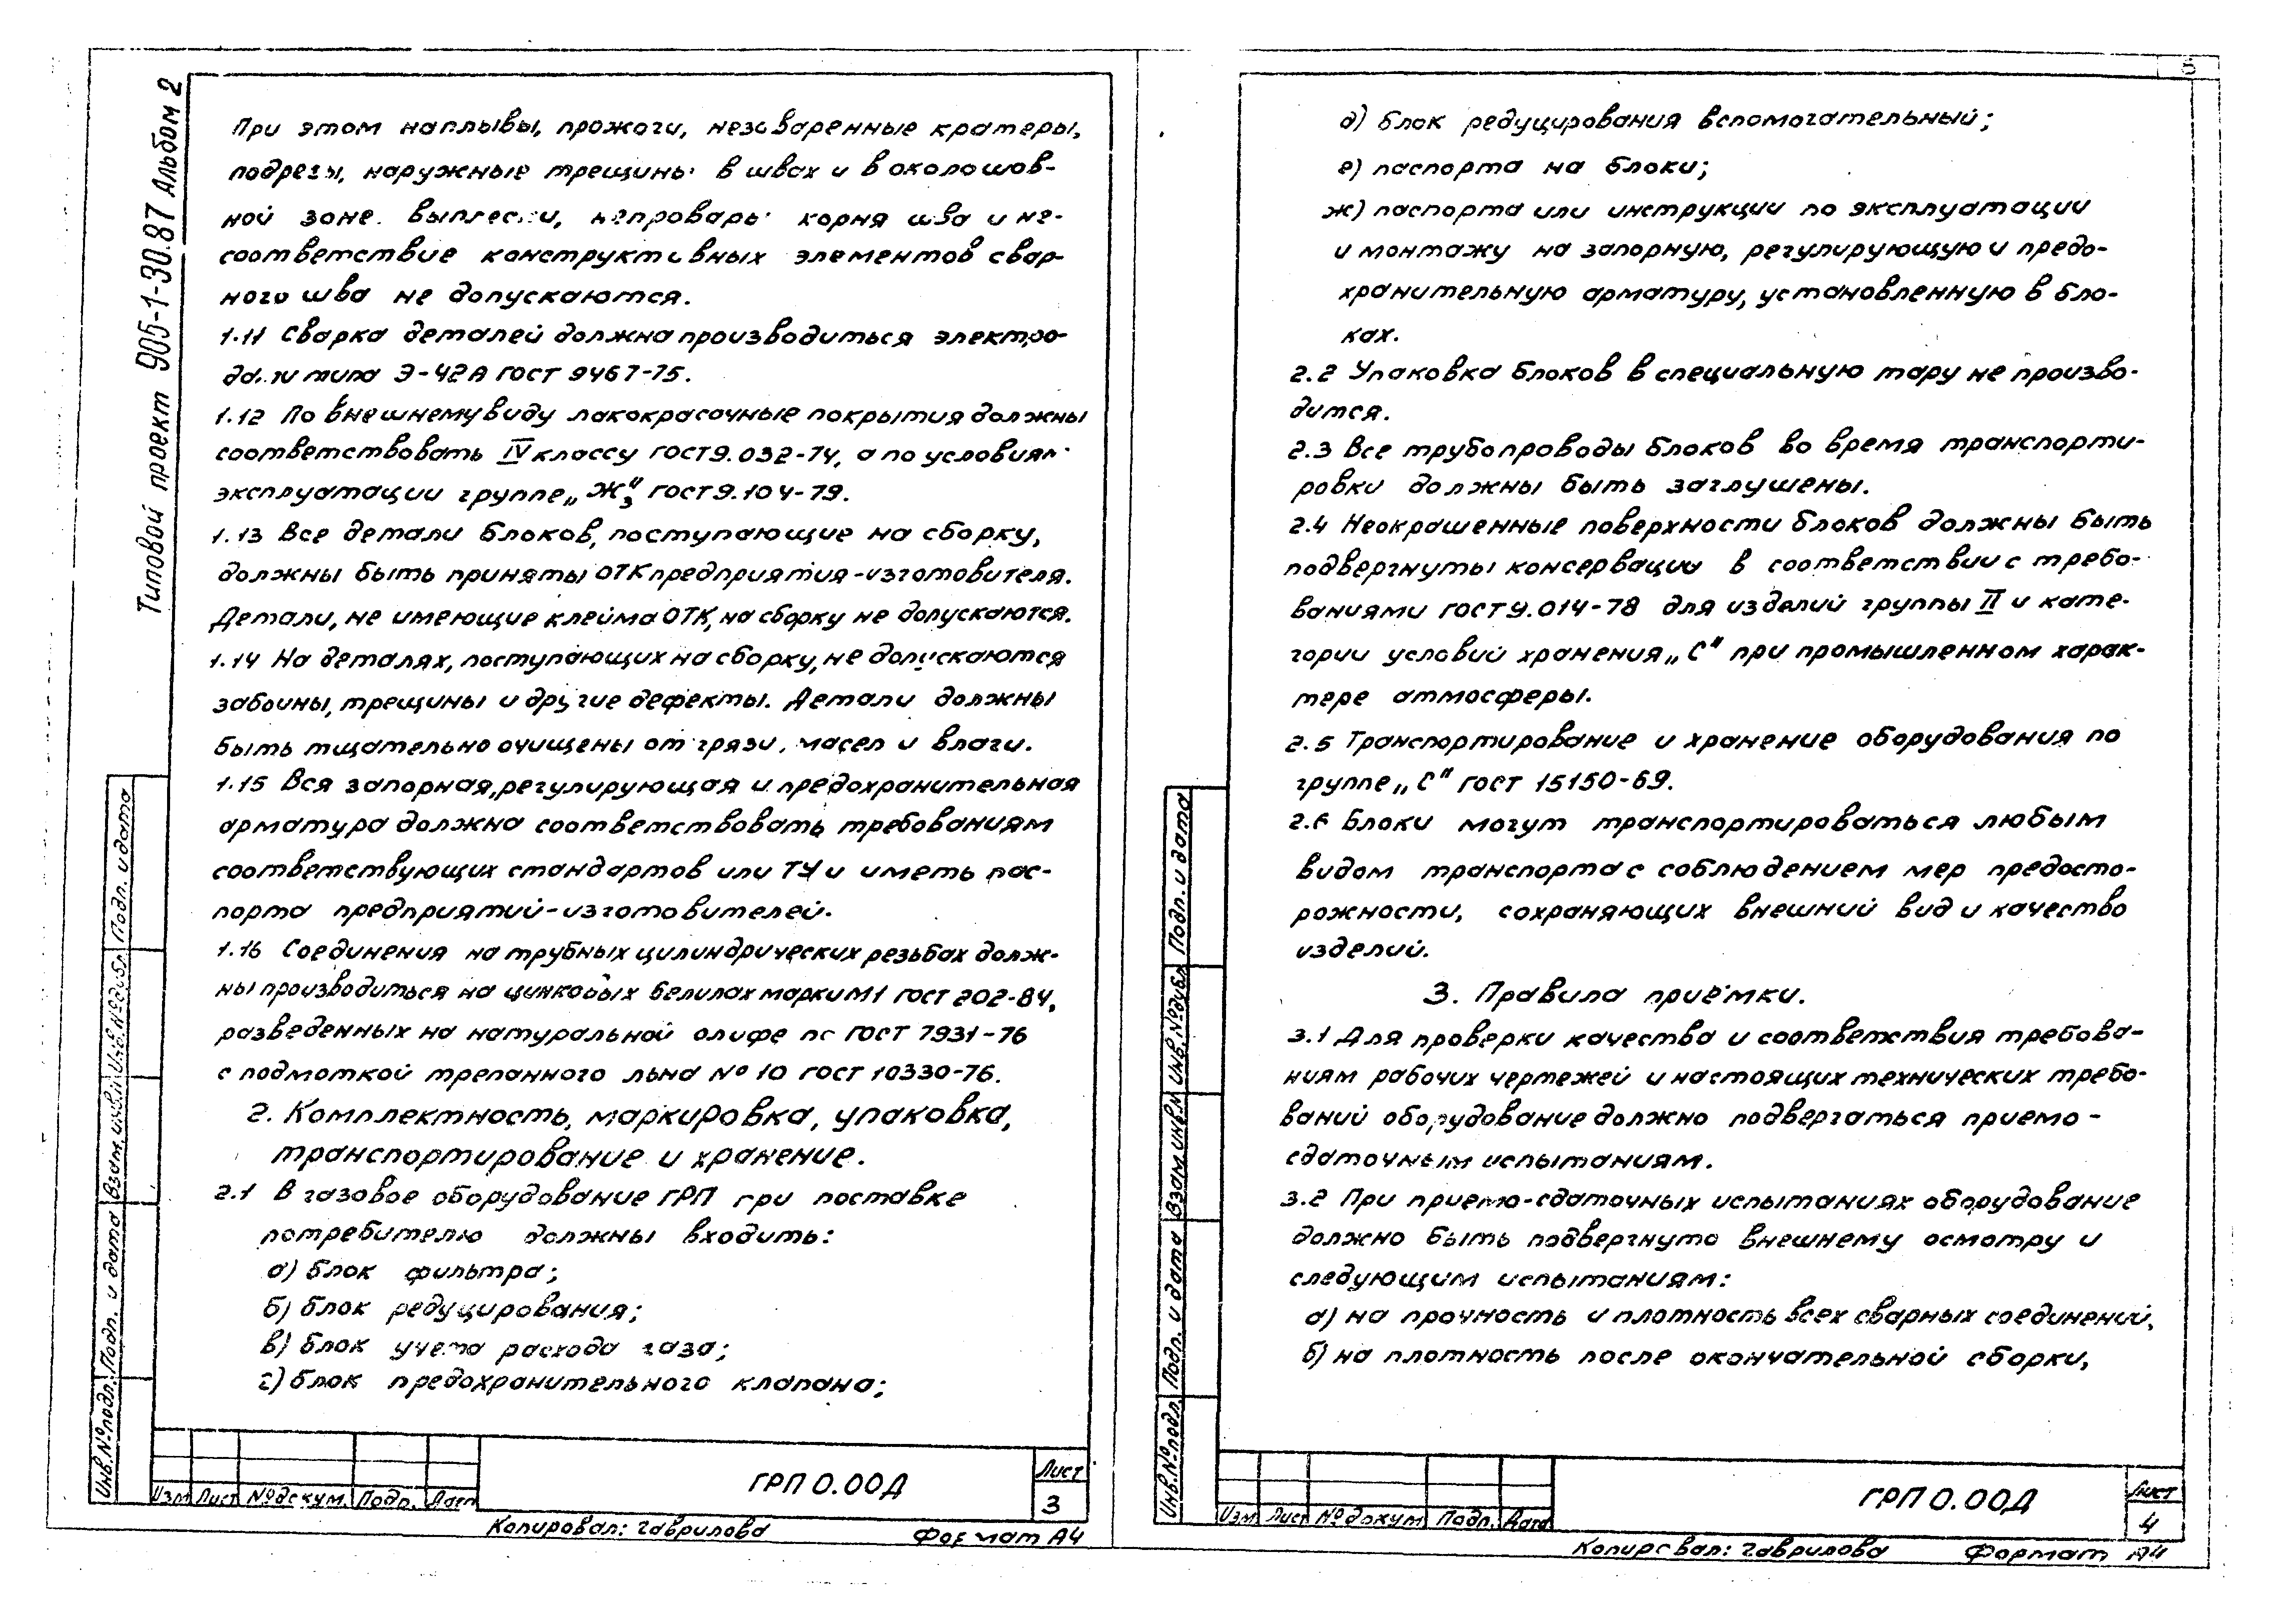 Типовой проект 905-1-30.87 Альбом 2
При этом наплывы, прожоги, незаваренные кратеры,
подрезы, наружные трещины в швах и в околошов-
ной зоне. выплески, непровары корня шва и не-
соответствие конструктивных элементов свар-
ного шва не допускаются.
1.11 Сварка деталей должна производиться электро-
дами типа Э-42А ГОСТ 9467-75.
1.12 По внешнему виду лакокрасочные покрытия должны
соответствовать IV классу ГОСТ 9.032-74, а по условиям
эксплуатации группе „Ж3" ГОСТ 9.104-79.
1.13 Все детали блоков, поступающие на сборку,
должны быть приняты ОТК предприятия-изготовителя.
Детали, не имеющие клейма ОТК, на сборку не допускаются.
1.14 На деталях, поступающих на сборку, не допускаются
забоины, трещины и другие дефекты. Детали должны
быть тщательно очищены от грязи, масел и влаги.
1.15 Вся запорная, регулирующая и предохранительная
арматура должна соответствовать требованиям
соответствующих стандартов или ТУ и иметь пас-
порта предприятий-изготовителей.
1.16 Соединения на трубных цилиндрических резьбах долж-
ны производиться на цинковых белилах марки М1 ГОСТ 202-84,
разведенных на натуральной олифе по ГОСТ 7931-76
с подмоткой трепанного льна № 10 ГОСТ 10330-76.
2. Комплектность, маркировка, упаковка,
транспортирование и хранение.
2.1 В газовое оборудование ГРП при поставке
потребителю должны входить:
а) блок фильтра;
б) блок редуцирования;
в) блок учета расхода газа;
г) блок предохранительного клапана;
Инв.№подл. Подп. и дата Взам.инв.№ Инв.№дубл. Подп. и дата
Изм Лист №докум. Подп. Дата
ГРП 0.00Д
Лист
3
Копировал: Гаврилова Формат А4
5
д) блок редуцирования вспомогательный;
е) паспорта на блоки;
ж) паспорта или инструкции по эксплуатации
и монтажу на запорную, регулирующую и предо-
хранительную арматуру, установленную в бло-
ках.
2.2 Упаковка блоков в специальную тару не произво-
дится.
2.3 Все трубопроводы блоков во время транспорти-
ровки должны быть заглушены.
2.4 Неокрашенные поверхности блоков должны быть
подвергнуты консервации в соответствии с требо-
ваниями ГОСТ 9.014-78 для изделий группы II и кате-
гории условий хранения „С" при промышленном харак-
тере атмосферы.
2.5 Транспортирование и хранение оборудования по
группе „С" ГОСТ 15150-69.
2.6 Блоки могут транспортироваться любым
видом транспорта с соблюдением мер предосто-
рожности, сохраняющих внешний вид и качество
изделий.
3. Правила приёмки.
3.1 Для проверки качества и соответствия требова-
ниям рабочих чертежей и настоящих технических требо-
ваний оборудование должно подвергаться приемо-
сдаточным испытаниям.
3.2 При приемо-сдаточных испытаниях оборудование
должно быть подвергнуто внешнему осмотру и
следующим испытаниям:
а) на прочность и плотность всех сварных соединений,
б) на плотность после окончательной сборки,
Инв.№подл. Подп. и дата Взам.инв.№ Инв.№дубл. Подп. и дата
Изм Лист №докум Подп. Дата
ГРП 0.00Д
Лист
4
Копировал: Гаврилова Формат А4